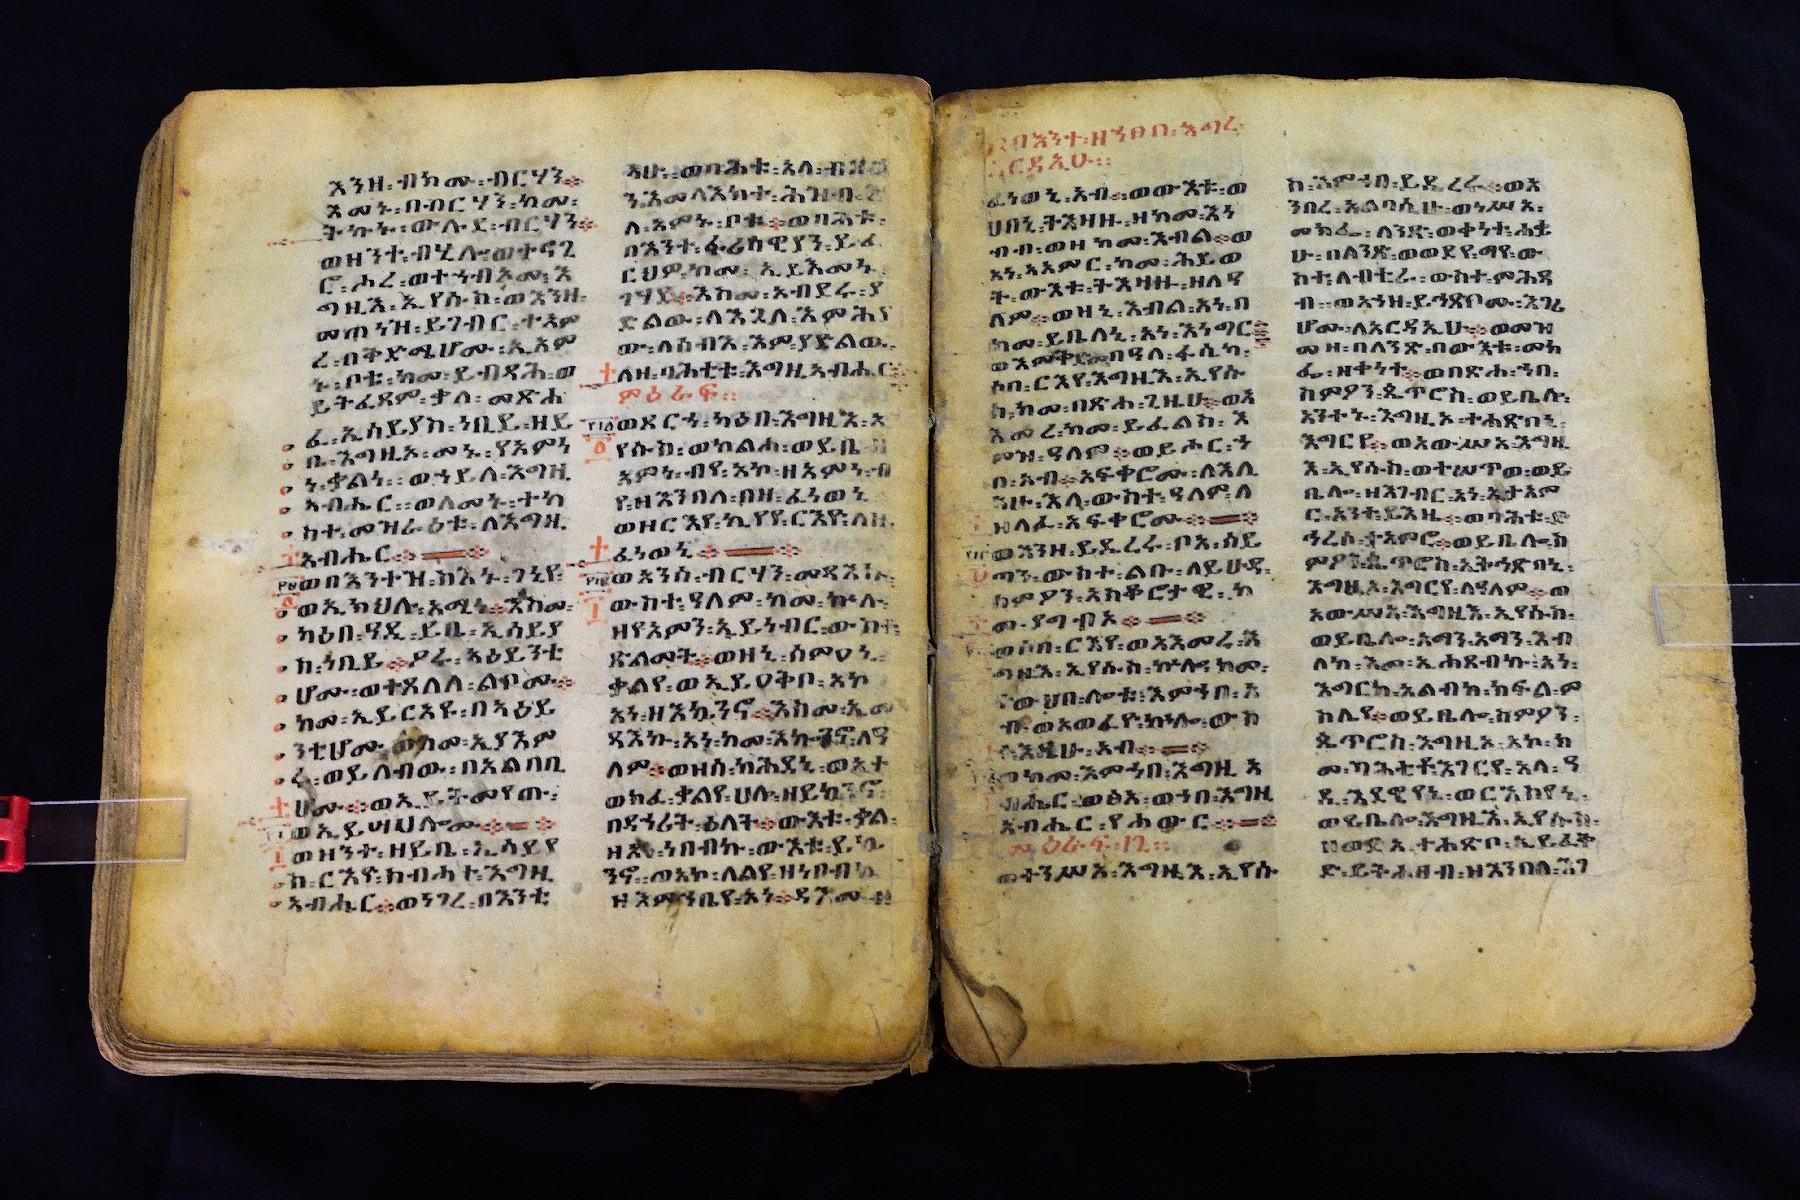 እንዘ፡ብክሙ፡ብርሃን፨
እመኑ፡በብርሃን፡ከመ፡
ትኩኑ፡ውሉደ፡ብርሃን፨
ወዘንተ፡ብሂሎ፡ወተናጊ
ሮ፡ሖረ፡ወተኀብአሙ፡እ
ግዚእ፡ኢየሱስ፡ወእንዘ፡
መጠነዝ፡ይገብር፡ተአም
ረ፡በቅድሜሆሙ፡ኢአም
ኑ፡ቦቱ፡ከመ፡ይብጻሕ፡ወ
ይትፈጸም፡ቃለ፡መጽሐ
ፈ፡ኢሳይያስ፡ነቢይ፡ዘይ
ቤ፡እግዚኦ፡መኑ፡የአምነ
ነ፡ቃልነ፡፡ወኀይለ፡እግዚ
አብሔር፡፡ወለመኑ፡ተከ
ስተ፡መዝራዕቱ፡ለእግዚ
አብሔር፨
ወበእንተዝ፡ስእኑ፡ገኒየ፡
ወኢክህሉ፡አሚነ፨እስመ፡
ካዕበ፡ዓዲ፡ይቤ፡ኢሳይያ
ስ፡ነቢይ፨ዖረ፡አዕይንቲ
ሆሙ፡ወተጸለለ፡ልቦሙ፨
ከመ፡ኢይርአዩ፡በአዕይ
ንቲሆሙ፡ወከመ፡ኢያእም
ሩ፡ወይለብው፡በአልባቢ
ሆሙ፨ወኢይትመየጡ፡
ወኢይሣህሎሙ፨
ወዘንተ፡ዘይቤ፡ኢሳይያ
ስ፡ርእዮ፡ስብሐተ፡እግዚ
አብሔር፨ወነገረ፡በእንቲ
አሁ፡፡ወባሕቱ፡እለ፡ብዙኃ
ን፡እመላእክተ፡ሕዝብ፡
ለ፡አምኑ፡ቦቱ፨ወባሕቱ፡
በእንተ፡ፈሪሳዊያን፡ይፈ
ርህዎ፡ከመ፡ኢይእመኑ፡
ገሃደ፨እስመ፡አብደሩ፡ያ
ድልው፡ለእጓለ፡እምሕያ
ው፡ለስብእ፡እም፡ያድልው፡
ለዘ፡ባሕቲቱ፡እግዚአብሔር
ምዕራፍ፡፡
ወጸርኀ፡ካዕበ፡እግዚእ፡ኢ
የሱስ፡ወከልሐ፡ወይቤ፡ዘ
አምነ፡ብየ፡አኮ፡ዘአምነ፡ብ
የ፡ዘእንበለ፡በዘ፡ፈነወኒ
ወዘርእየ፡ኪያየ፡ርእየ፡ለዘ
ፈነወኒ፨
ወአንሰ፡ብርሃን፡መጻእኩ
ውስተ፡ዓለም፡ከመ፡ኵሉ፡
ዘየአምን፡ኢይነብር፡ውስተ፡
ጽልመት፨ወዘኒ፡ሰምዐኒ፡
ቃልየ፡ወኢይዐቅቦ፡አኮ
አነ፡ዘእኴንኖ፨እስመ፡ኢመ
ጻእኩ፡አነ፡ከመ፡እኰንኖ፡ለዓ
ለም፨ወዘሰ፡ክሕደኒ፡ወኢተ
ወክፈ፡ቃልየ፡ሀሎ፡ዘይኴንኖ፡
በደኃሪት፡ዕለት፨ውእቱ፡ቃል፡
ዘአነ፡ነበብኩ፡ውእቱ፡ይኴ
ንኖ፡፡ወአኮ፡ለልየ፡ዘነበብኩ
ዘእምኀቤየ፡አነ፨ዳእሙ፡ዘ
በእንተ፡ዘኀፀበ፡እግረ፡
አርዳኢሁ፡፡
ፈነወኒ፡አብ፡ወውእቱ፡ወ
ሀበኒ፡ትእዛዘ፡ዘከመ፡እነ
ብብ፡ወዘከመ፡እብል፨ወ
አነ፡አአምር፡ከመ፡ሕይወ
ት፡ውእቱ፡ትእዛዙ፡ዘለዓ
ለም፨ወዘኒ፡እብል፡አነ፡በ
ከመ፡ይቤለኒ፡አነ፡እነግር፨
ወእምቅድመ፡በዓለ፡ፋሲካ፡
ሶበ፡ርእየ፡እግዚእ፡ኢየሱ
ስ፡ከመ፡በጽሐ፡ጊዜሁ፨ወአ
እመረ፡ከመ፡ይፈልስ፡እ
ምዝ፡ዓለም፨ወይሐር፡ኀ
በ፡አብ፨አፍቀሮሙ፡ለእሊ
አሁ፡እለ፡ውስተ፡ዓለም፡ለ
ዝለፈ፡አፍቀሮሙ፨
ወእንዘ፡ይደረሩ፡ቦአ፡ሰይ
ጣን፡ውስተ፡ልቡ፡ለይሁዳ፡
ስምዖን፡አስቆሮታዊ፡ከ
መ፡ያግብኦ፨
ወሶበ፡ርእየ፡ወአእመረ፡እ
ግዚእ፡ኢየሱስ፡ኵሎ፡ከመ፡
ወሀቦ፡ሎቱ፡እምኀበ፡አ
ብ፡ወአወፈዮ፡ኵሎ፡ውስ
ተ፡እዴሁ፡አብ፨
ወከመ፡እምኀበ፡እግዚአ
ብሔር፡ወፅአ፡ወኀበ፡እግዚ
አብሔር፡የሐውር፨
ምዕራፍ፡፲፫፡፡
ወተንሥአ፡እግዚእ፡ኢየሱ
ስ፡እምኀበ፡ይደረሩ፨ወአ
ንበረ፡አልባሲሁ፡ወነሥአ፡
መክፈ፡ለንጽ፡ወቀነተ፡ሐቌ
ሁ፡በለንጽ፡ወወደየ፡ማየ፡ው
ስተ፡ለብቲራ፡ውስተ፡ምሕፃ
ብ፡፡ወአኀዘ፡ይኅጽቦሙ፡እገሪ
ሆሙ፡ለአርዳኢሁ፨ወመዝ
መዘ፡በለንጽ፡በውእቱ፡መክ
ፈ፡ዘቀነተ፨ወበጽሐ፡ኀበ፡
ስምዖን፡ጴጥሮስ፡ወይቤሎ፡
አንተኑ፡እግዚኦ፡ተሐፅበኒ፡
እግርየ፨ወአውሥአ፡እግዚ
እ፡ኢየሱስ፡ወተሠጥወ፡ወይ
ቤሎ፡ዘእገብር፡አነ፡ኢታአም
ር፡አንተ፡ይእዜ፨ወባሕቱ፡ድ
ኅረሰ፡ተአምሮ፨ወይቤሎ፡ስ
ምዖን፡ጴጥሮስ፡ኢትኅጽበኒ፡
እግዚኦ፡እግርየ፡ለዓለም፨ወ
አውሥአ፡እግዚእ፡ኢየሱስ፡
ወይቤሎ፡አማን፡አማን፡እብ
ለከ፡እመ፡ኢሐፀብኩ፡አነ፡
እግርከ፡አልብከ፡ክፍል፡ም
ስሌየ፨ወይቤሎ፡ስምዖን፡
ጴጥሮስ፡እግዚኦ፡አኮ፡ከ
መ፡ባሕቲቶ፡እገርየ፡አላ፡ዓ
ዲ፡እደዊየኒ፡ወርእስየኒ፡
ወይቤሎ፡እግዚእ፡ኢየሱስ፡
ዘወድአ፡ተሐጽቦ፡ኢይፈቅ
ድ፡ይትሐፀብ፡ዘእንበለ፡እገ